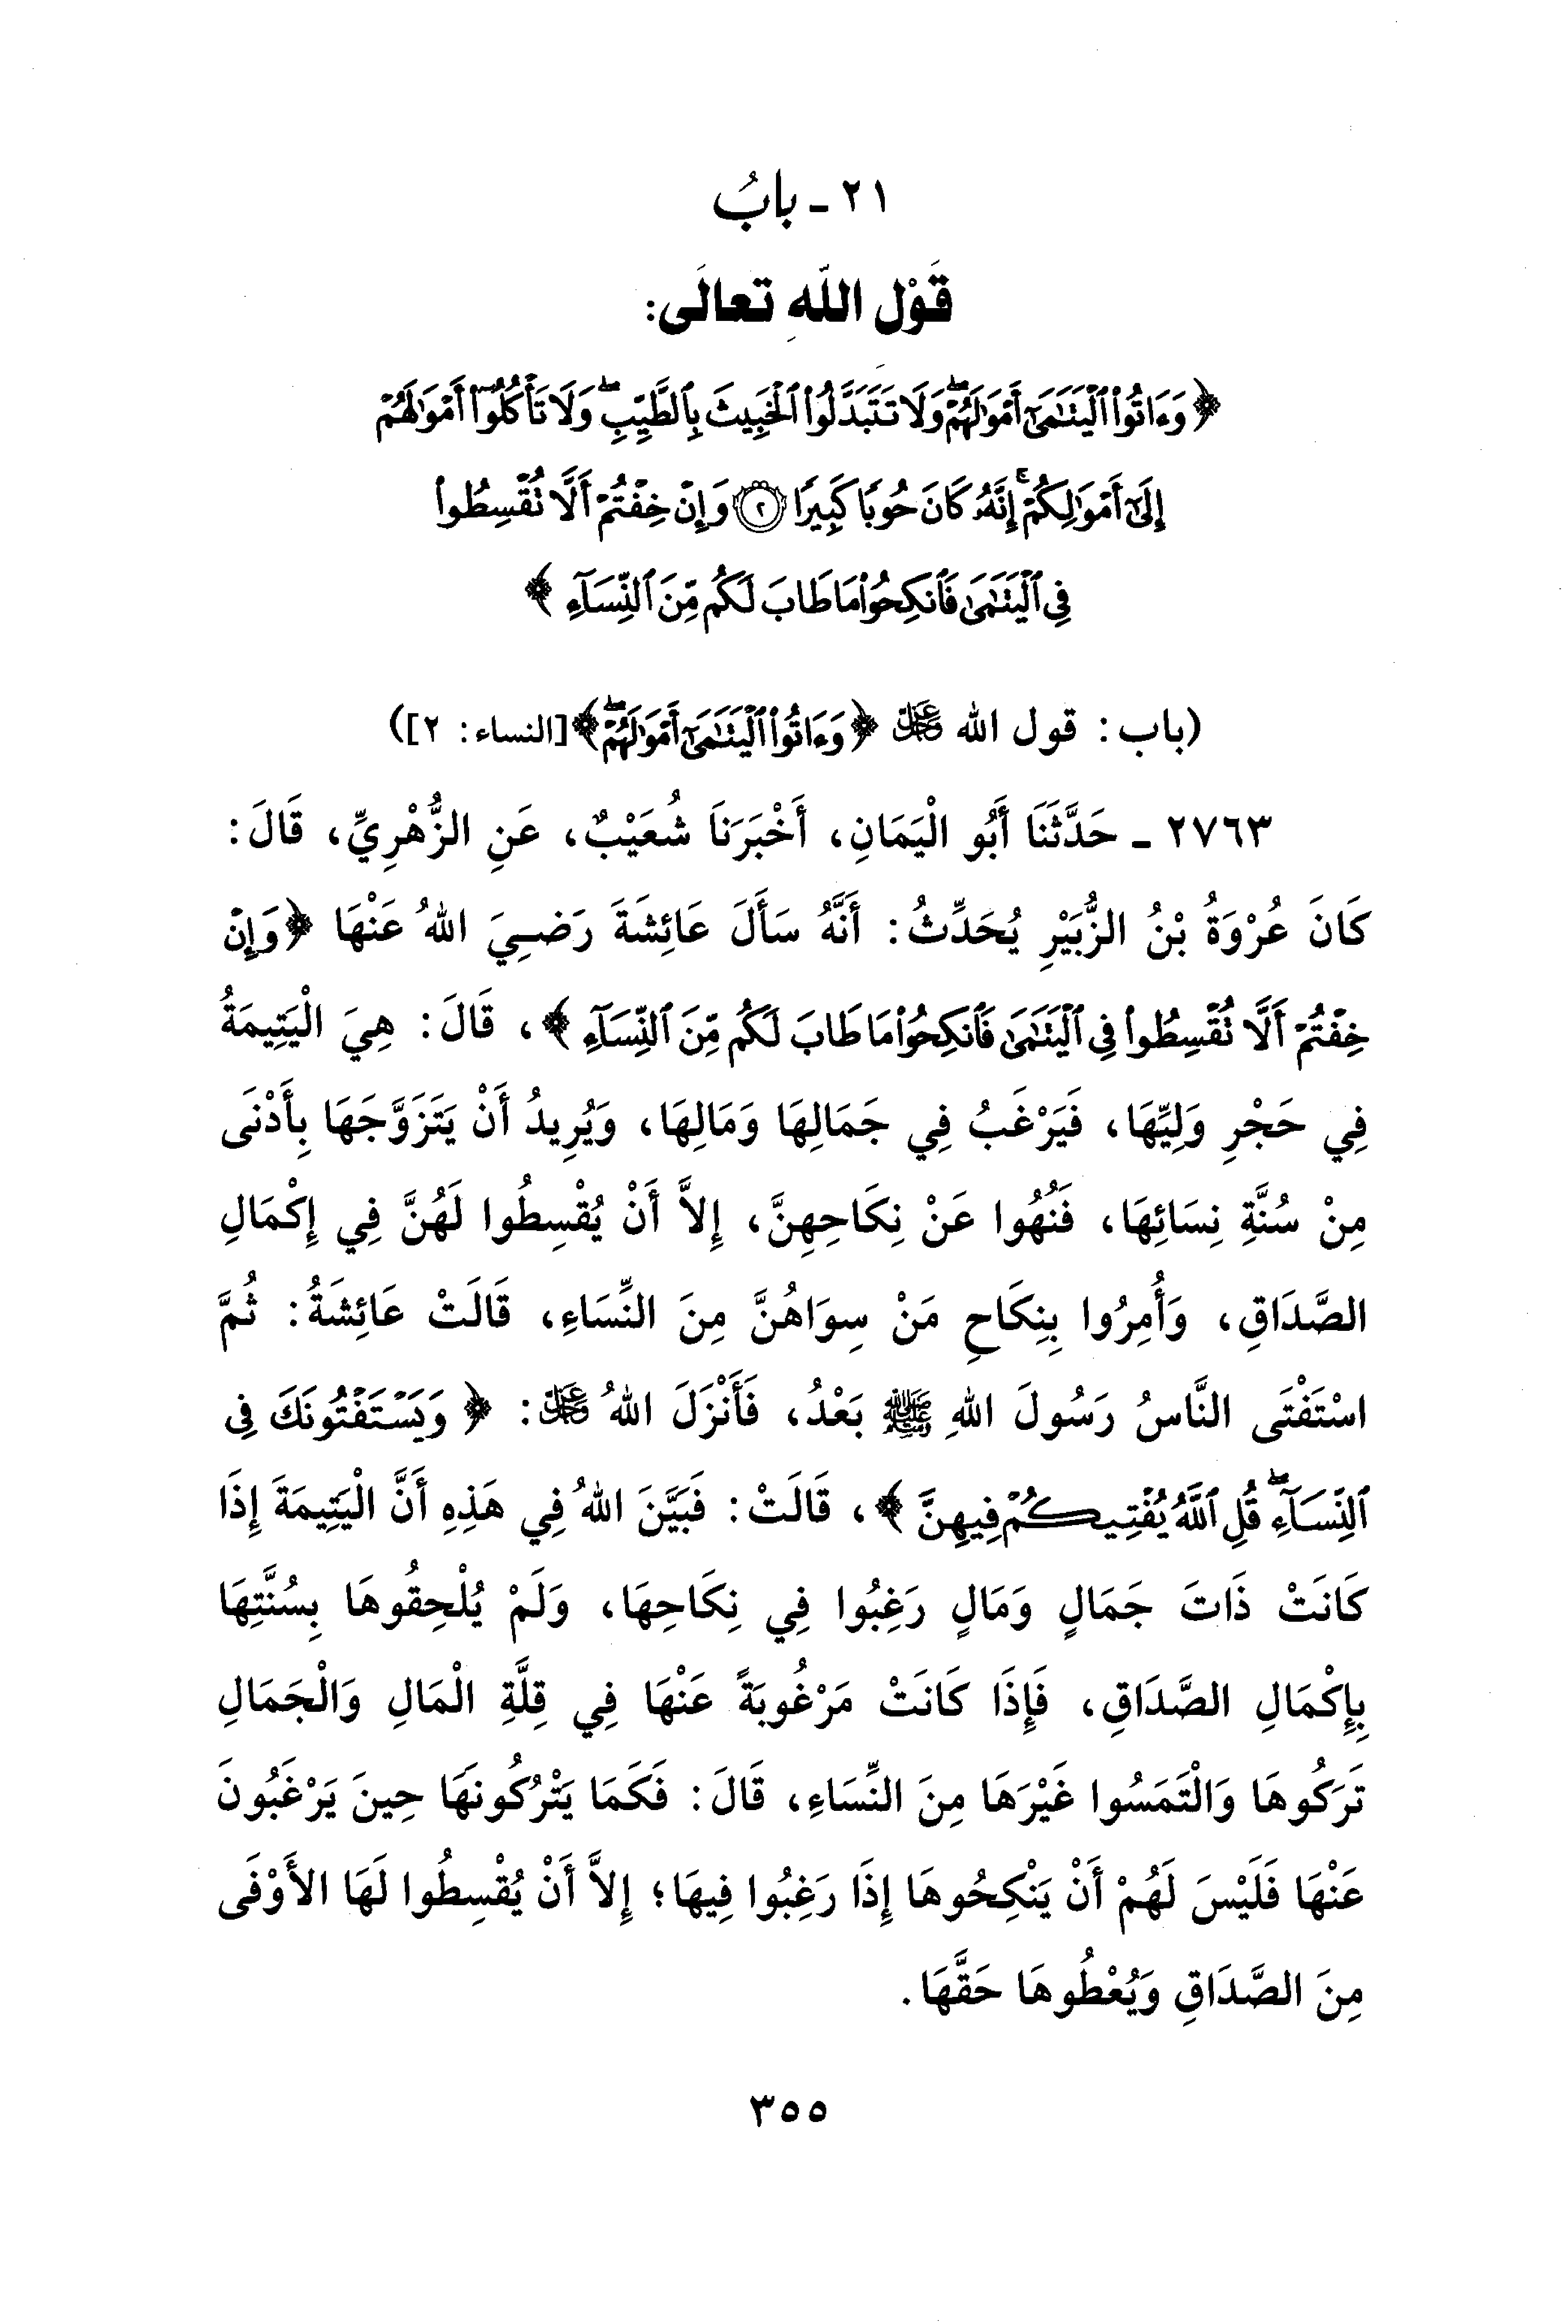 ٢١ - بابُ
قَوْلِ اللَّهِ تعالَى:
﴿وَءَاتُوا۟ ٱلْيَتَٰمَىٰٓ أَمْوَٰلَهُمْ ۖ وَلَا تَتَبَدَّلُوا۟ ٱلْخَبِيثَ بِٱلطَّيِّبِ ۖ وَلَا تَأْكُلُوٓا۟ أَمْوَٰلَهُمْ
إِلَىٰٓ أَمْوَٰلِكُمْ ۚ إِنَّهُۥ كَانَ حُوبًا كَبِيرًا ٢ وَإِنْ خِفْتُمْ أَلَّا تُقْسِطُوا۟
فِى ٱلْيَتَٰمَىٰ فَٱنكِحُوا۟ مَا طَابَ لَكُم مِّنَ ٱلنِّسَآءِ﴾
(باب: قول الله عز وجل ﴿وَءَاتُوا۟ ٱلْيَتَٰمَىٰٓ أَمْوَٰلَهُمْ ۖ﴾ [النساء: ٢])
٢٧٦٣ - حَدَّثَنَا أَبُو الْيَمَانِ، أَخْبَرَنَا شُعَيْبٌ، عَنِ الزُّهْرِيِّ، قَالَ:
كَانَ عُرْوَةُ بْنُ الزُّبَيْرِ يُحَدِّثُ: أَنَّهُ سَأَلَ عَائِشَةَ رَضِيَ اللهُ عَنْهَا ﴿وَإِنْ
خِفْتُمْ أَلَّا تُقْسِطُوا۟ فِى ٱلْيَتَٰمَىٰ فَٱنكِحُوا۟ مَا طَابَ لَكُم مِّنَ ٱلنِّسَآءِ﴾، قَالَ: هِيَ الْيَتِيمَةُ
فِي حَجْرِ وَلِيِّهَا، فَيَرْغَبُ فِي جَمَالِهَا وَمَالِهَا، وَيُرِيدُ أَنْ يَتَزَوَّجَهَا بِأَدْنَى
مِنْ سُنَّةِ نِسَائِهَا، فَنُهُوا عَنْ نِكَاحِهِنَّ، إِلاَّ أَنْ يُقْسِطُوا لَهُنَّ فِي إِكْمَالِ
الصَّدَاقِ، وَأُمِرُوا بِنِكَاحِ مَنْ سِوَاهُنَّ مِنَ النِّسَاءِ، قَالَتْ عَائِشَةُ: ثُمَّ
اسْتَفْتَى النَّاسُ رَسُولَ اللهِ ﷺ بَعْدُ، فَأَنْزَلَ اللهُ عز وجل: ﴿وَيَسْتَفْتُونَكَ فِى
ٱلنِّسَآءِ ۖ قُلِ ٱللَّهُ يُفْتِيكُمْ فِيهِنَّ﴾، قَالَتْ: فَبَيَّنَ اللهُ فِي هَذِهِ أَنَّ الْيَتِيمَةَ إِذَا
كَانَتْ ذَاتَ جَمَالٍ وَمَالٍ رَغِبُوا فِي نِكَاحِهَا، وَلَمْ يُلْحِقُوهَا بِسُنَّتِهَا
بِإِكْمَالِ الصَّدَاقِ، فَإِذَا كَانَتْ مَرْغُوبَةً عَنْهَا فِي قِلَّةِ الْمَالِ وَالْجَمَالِ
تَرَكُوهَا وَالْتَمَسُوا غَيْرَهَا مِنَ النِّسَاءِ، قَالَ: فَكَمَا يَتْرُكُونَهَا حِينَ يَرْغَبُونَ
عَنْهَا فَلَيْسَ لَهُمْ أَنْ يَنْكِحُوهَا إِذَا رَغِبُوا فِيهَا؛ إِلاَّ أَنْ يُقْسِطُوا لَهَا الأَوْفَى
مِنَ الصَّدَاقِ وَيُعْطُوهَا حَقَّهَا.
٣٥٥